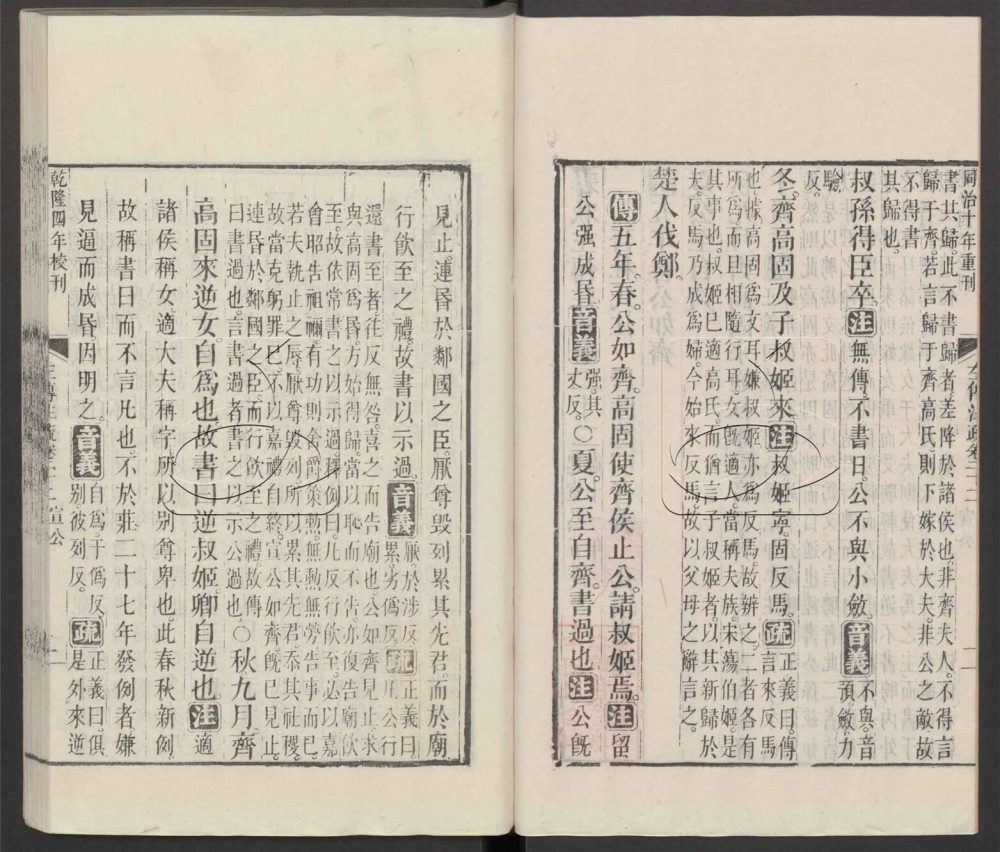 同治十年重刊
書其歸此不書歸者差降於諸侯也非齊夫人不得言
歸于齊若言歸于齊高氏則下嫁於大夫非公之敵故
不得書
其歸也
叔孫得臣卒注無傳不書日公不與小斂音義不與音
預斂力
驗
反
冬齊高固及子叔姬來注叔姬寧固反馬疏正義曰傳
言來反馬
也據高固爲文耳嫌叔姬亦爲反馬故辨之二者各有
所爲而且相隨行耳女旣適人當稱夫族宋蕩伯姬是
其事也叔姬已適高氏而猶言子叔姬者以其新歸於
夫反馬乃成爲婦今始來反馬故以父母之辭言之
楚人伐鄭
傳五年春公如齊高固使齊侯止公請叔姬焉注留
公强成昏音義强其
丈反〇夏公至自齊書過也注公旣
見止連昏於鄰國之臣厭尊毀列累其先君而於廟
行飲至之禮故書以示過音義厭於涉反
累劣僞反疏正義曰
凡公行
還書至者往反無咎喜之而告廟也公如齊見止求
與高固爲昏方始得歸當以恥而不告亦復告廟飲
至故依常書之以示過釋例曰凡反行飲至必以嘉
會昭告祖禰有功則舍爵策勲無勲無勞告事而已
若夫執止之辱厭尊毀列所以累其先君忝其社稷
故當克躬罪已不以嘉禮自終宣公如齊旣已見止
連昏於鄰國之臣而行飲至之禮故傳
曰書過也言書過者書之以示公過也〇秋九月齊
高固來逆女自爲也故書曰逆叔姬卿自逆也注適
諸侯稱女適大夫稱字所以别尊卑也此春秋新例
故稱書曰而不言凡也不於莊二十七年發例者嫌
見逼而成昏因明之音義自爲于僞反
别彼列反疏正義曰俱
是外來逆
乾隆四年校刊
宣公